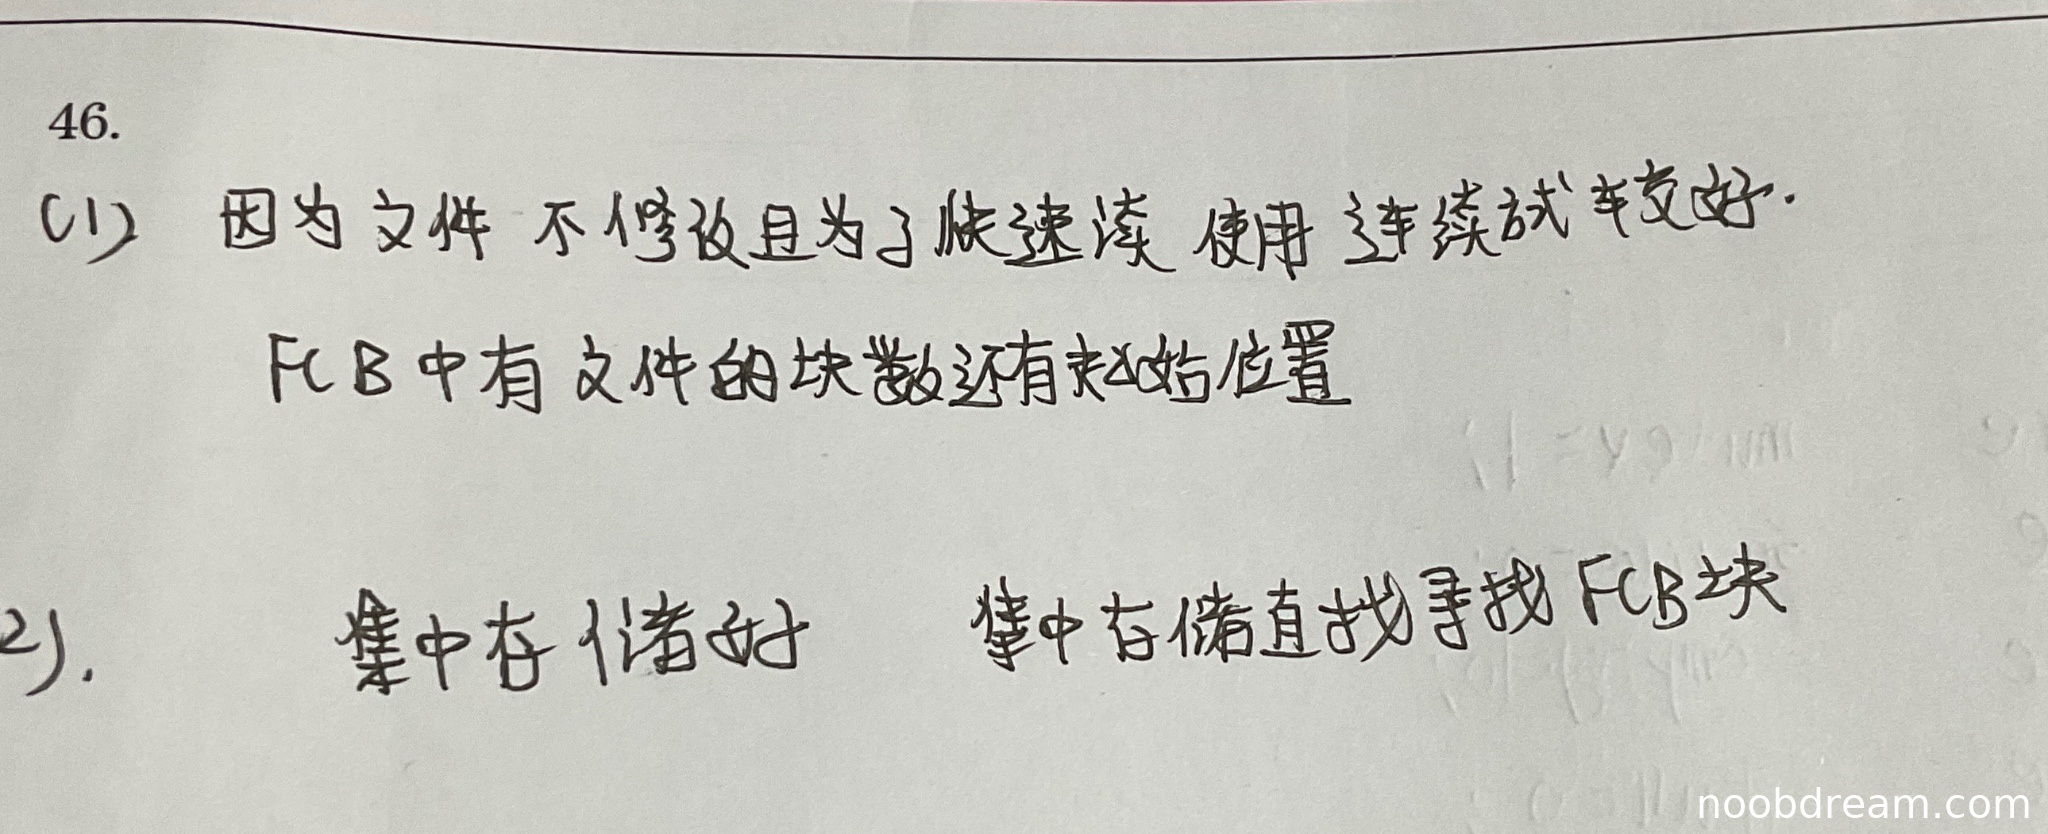 46.
(1) 因为文件 不修改且为了快速读 使用 连续式较好.
FCB中有文件的块数还有起始位置
2). 集中存储好 集中存储直找寻找FCB块
noobdream.com